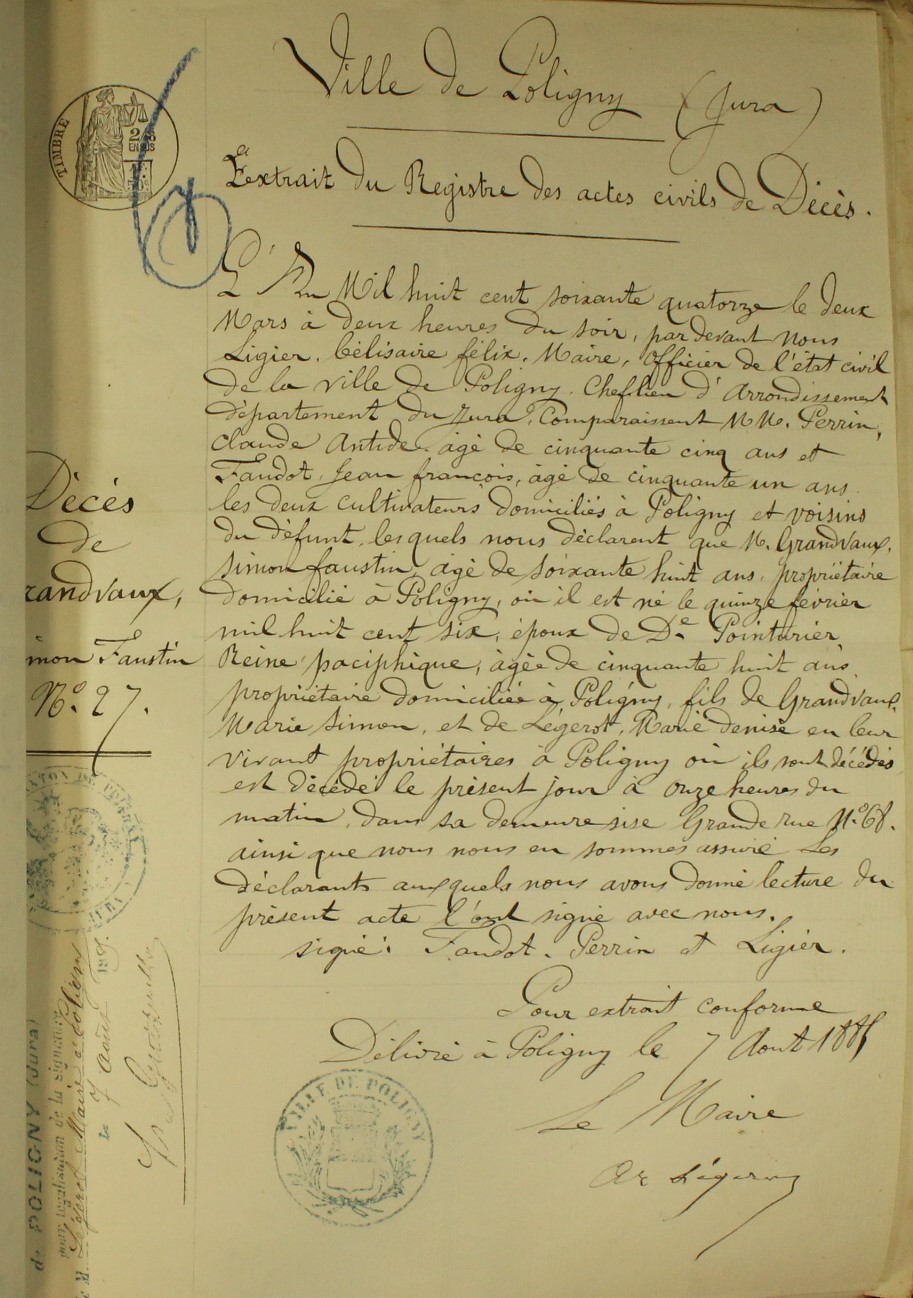 Ville de Poligny (Jura)
Extrait du Registre des actes civils de Décès.
L'An Mil huit cent soixante quatorze le deux
Mars à deux heures du soir, par devant nous
Ligier, bélisaire félix, Maire, officier de l'état civil
de la ville de Poligny, Cheflieu d'Arrondissement
département du Jura, Comparaissent MM. Perrin,
claude Antide, âgé de cinquante cinq ans et
Faudot, Jean françois, âgé de cinquante un ans
les deux cultivateurs domiciliés à Poligny et voisins
du défunt, lesquels nous déclarent que M. Grandvaux,
simon faustin, âgé de soixante huit ans, propriétaire
domicilié à Poligny, où il est né le quinze février
mil huit cent six, époux de De. Pointurier
Reine paciphique, âgée de cinquante huit ans
propriétaire domiciliée à Poligny, fils de Grandvaux
Marie Simon, et de Légerot, Marie denise en leur
vivant propriétaires à Poligny où ils sont décédés
est décédé le présent jour à onze heures du
matin, dans sa demeure sise Grande rue No. 68.
ainsi que nous nous en sommes assuré Les
déclarants auxquels nous avons donné lecture du
présent acte l'ont signé avec nous.
signé: Faudot, Perrin et Ligier.
Pour extrait conforme
Délivré à Poligny le 7 Aout 1885
Le Maire
Décès
de
randvaux,
mon Faustin
No. 27.
TIMBRE
VILLE DE POLIGNY
de POLIGNY (Jura)
pour légalisation de la signature
de M.
Maire de Poligny
le 7 Août